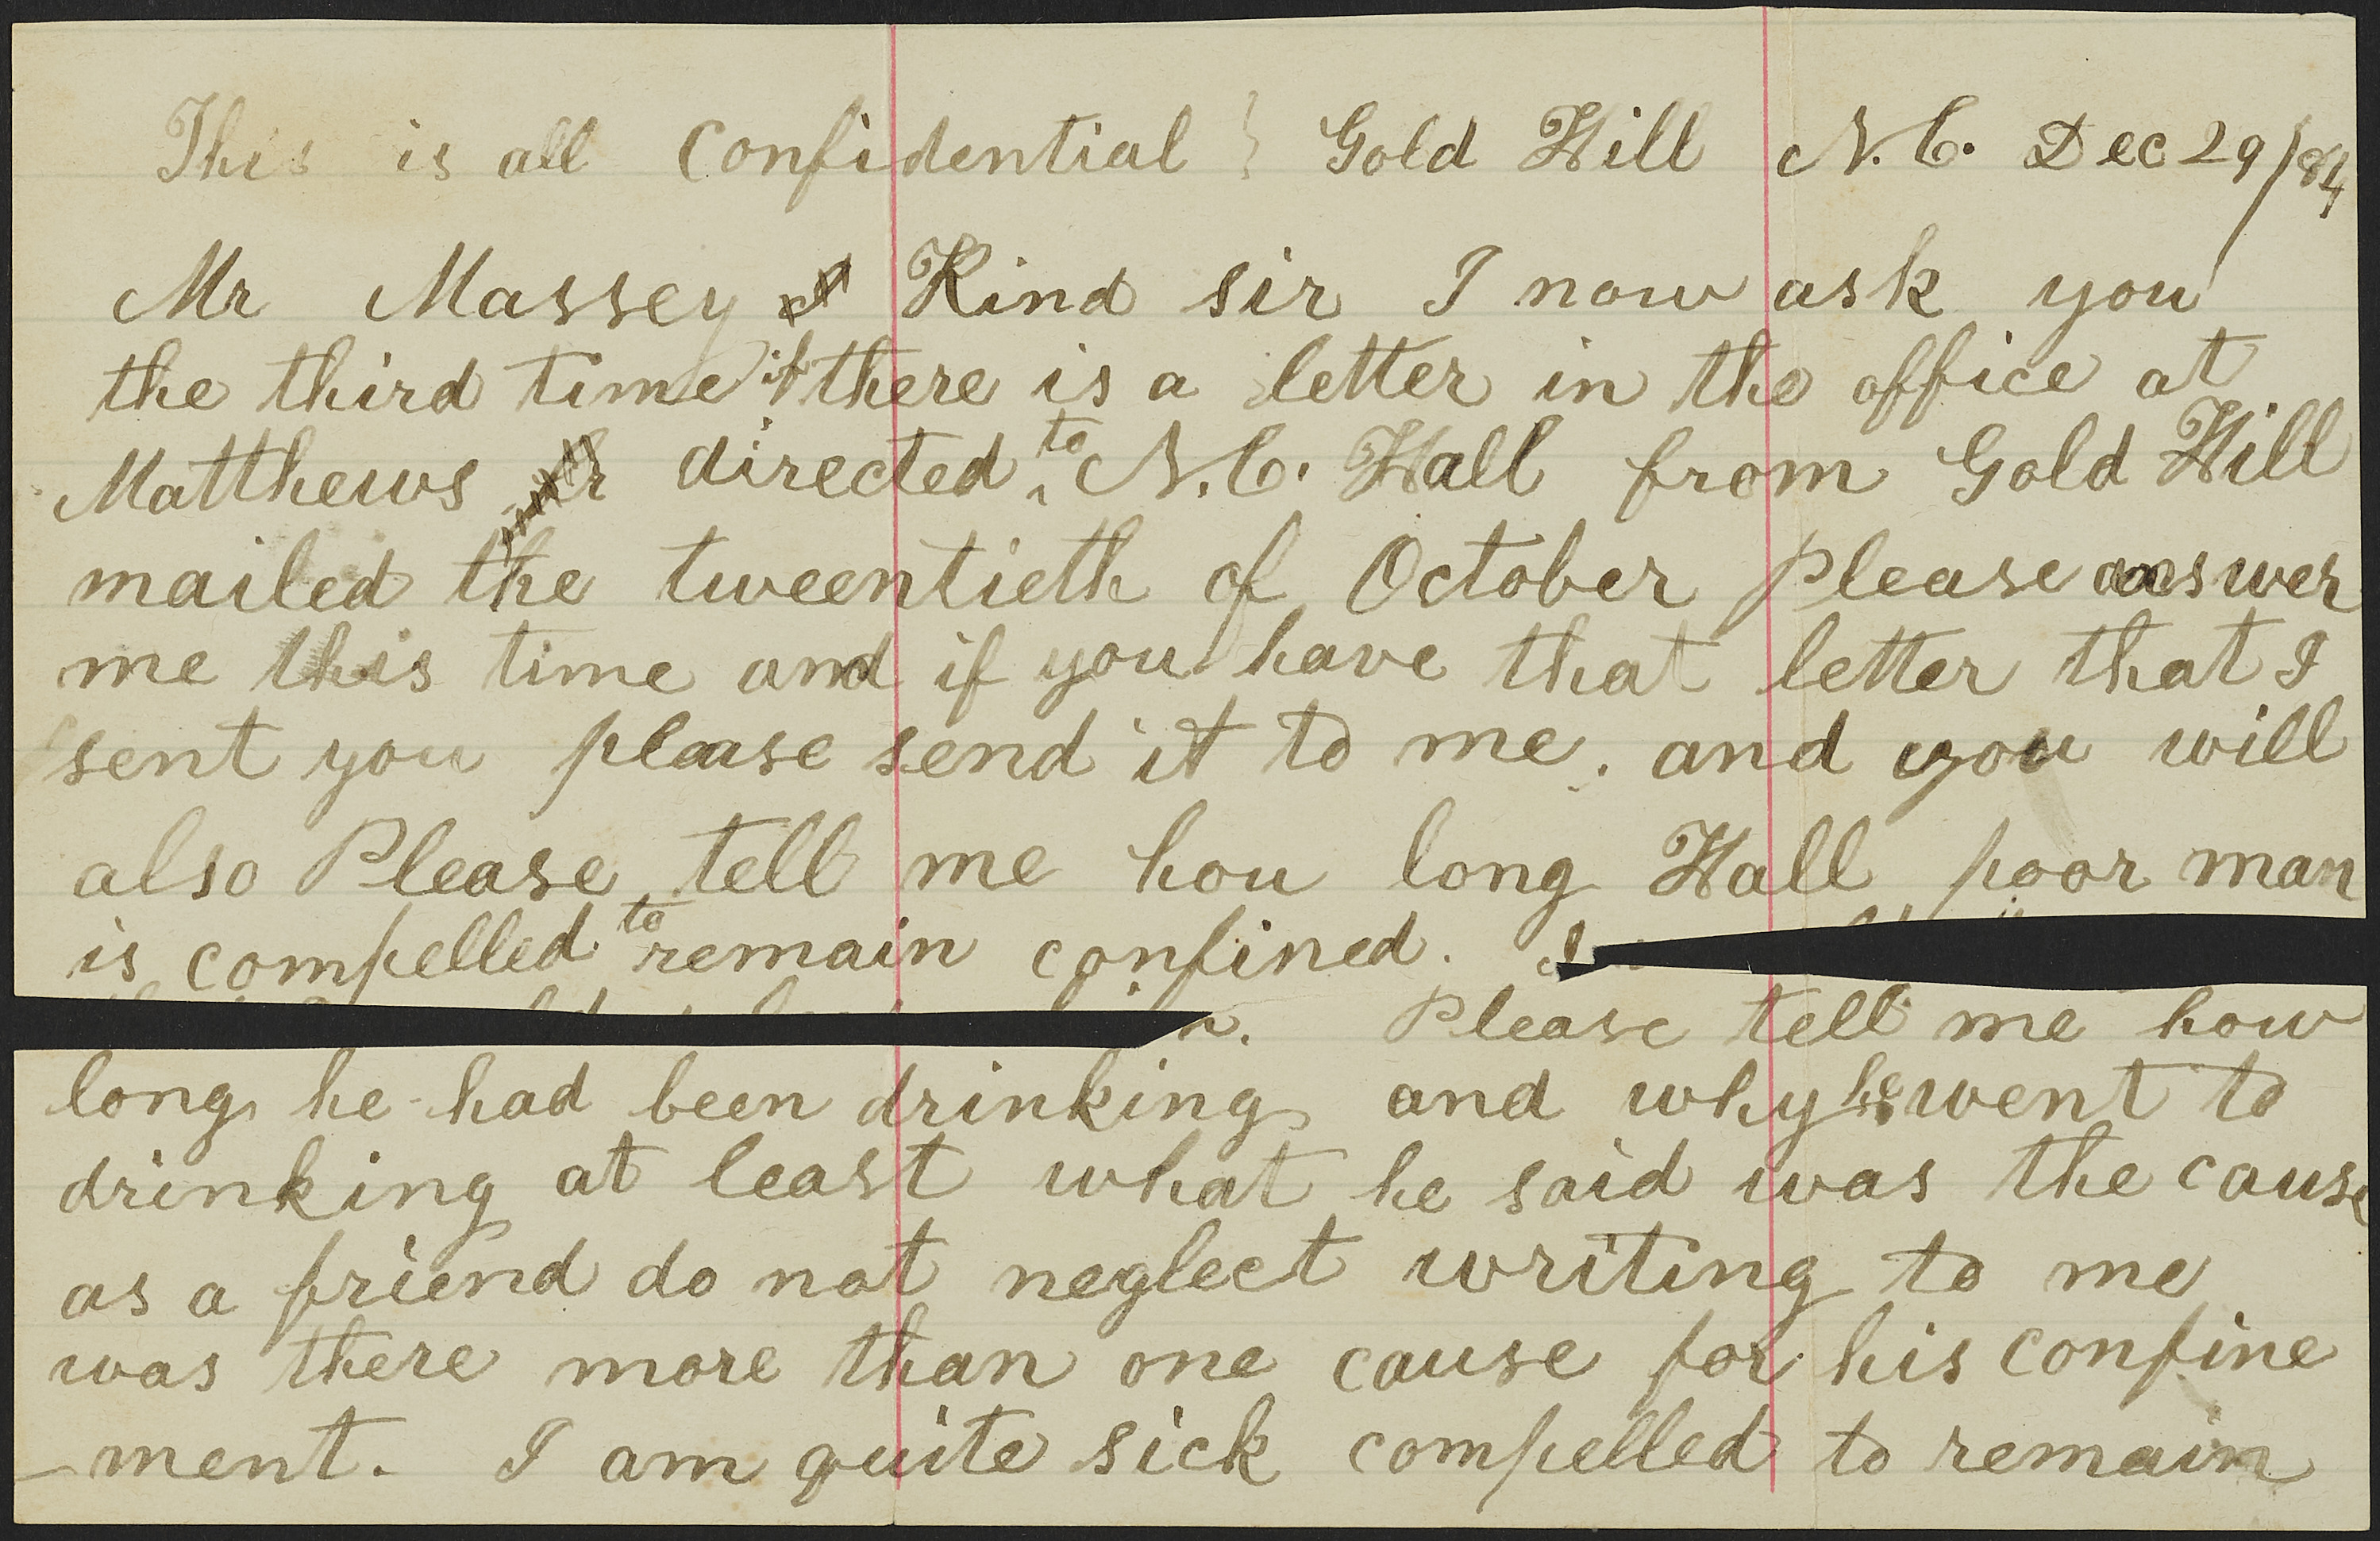 This is all Confidential } Gold Hill N.C. Dec 29/84
Mr Massey Kind sir I now ask you
the third time if there is a letter in the office at
Matthews directed to N.C. Hall from Gold Hill
mailed the tweentieth of October please answer
me this time and if you have that letter that I
sent you please send it to me. and you will
also Please tell me hou long Hall poor man
is compelled to remain confined.
Please tell me how
long he had been drinking and why he went to
drinking at least what he said was the cause
as a friend do not neglect writing to me
was there more than one cause for his confine
-ment. I am quite sick compelled to remain